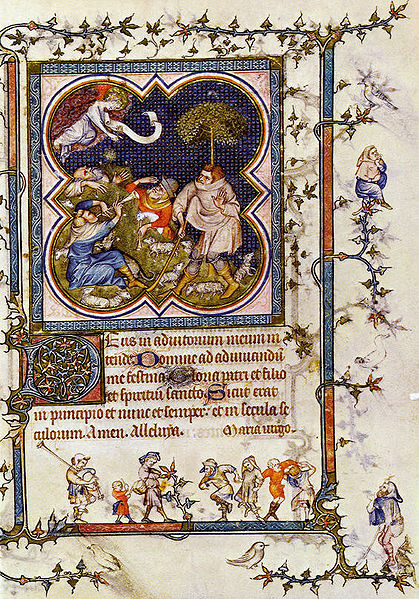 Deus in adiutorium meum in
tende Domine ad adiuuandū
me festina Gloria patri et filio
et spiritui sancto. Sicut erat
in principio et nunc et semper: et in secula se
culorum. Amen. Alleluya. Maria uirgo.